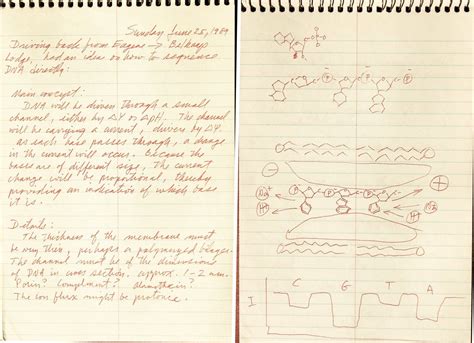 Sunday, June 25, 1989
Driving back from Eugene → Belknap
Lodge, had an idea on how to sequence
DNA directly:
Main concept:
DNA will be driven through a small
channel, either by ΔΨ or ΔpH. The channel
will be carrying a current, driven by ΔΨ.
As each base passes through, a change
in the current will occur. Because the
bases are of different size, the current
change will be proportional, thereby
providing an indication of which base
it is.
Details:
The thickness of the membrane must
be very thin, perhaps a polymerized
The channel must be of the dimensions
of DNA in cross section, approx. 1-2 nm.
Porin? Complement? Alamethicin?
The ion flux might be protons.
P
P P
- +
P P P
Na+
H+ H+
I C G T A